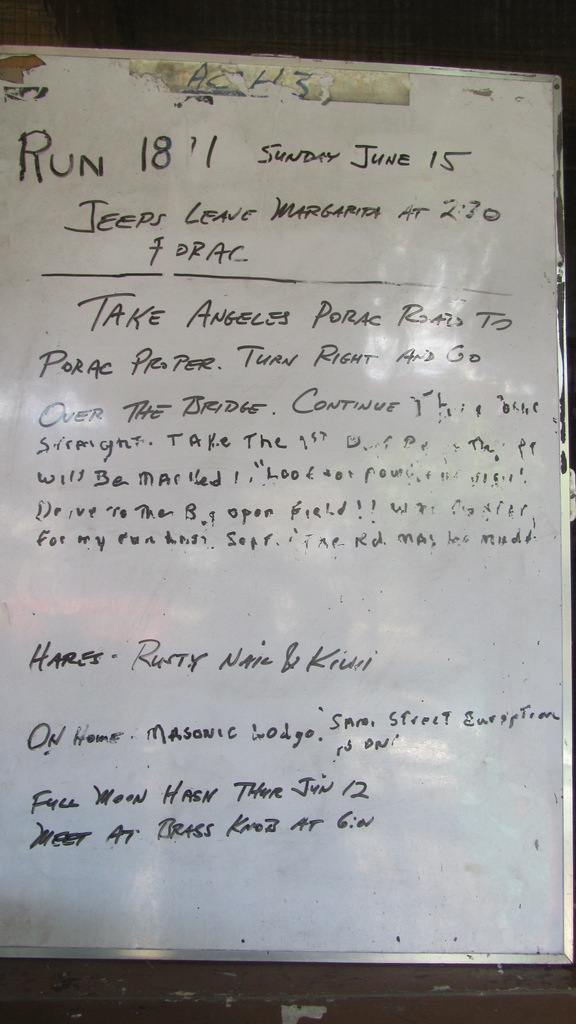 AC H3
RUN 18 1 SUNDAY JUNE 15
JEEPS LEAVE MARGARITA AT 2:30
PORAC
TAKE ANGELES PORAC ROAD TO
PORAC PROPER. TURN RIGHT AND GO
OVER THE BRIDGE. CONTINUE
STraighT. TAKe The 1ST
will Be MArked! "Look for
Drive To The Big open Field!!
For my run last Sept. The Rd. MAy be Muddy
HARES - RUSTY NAIL & KIWI
ON HOME - MASONIC Lodge. SAMe STreeT
is ON!
FULL MOON HASH THUR JUN 12
MEET AT BRASS KNOB AT 6:00